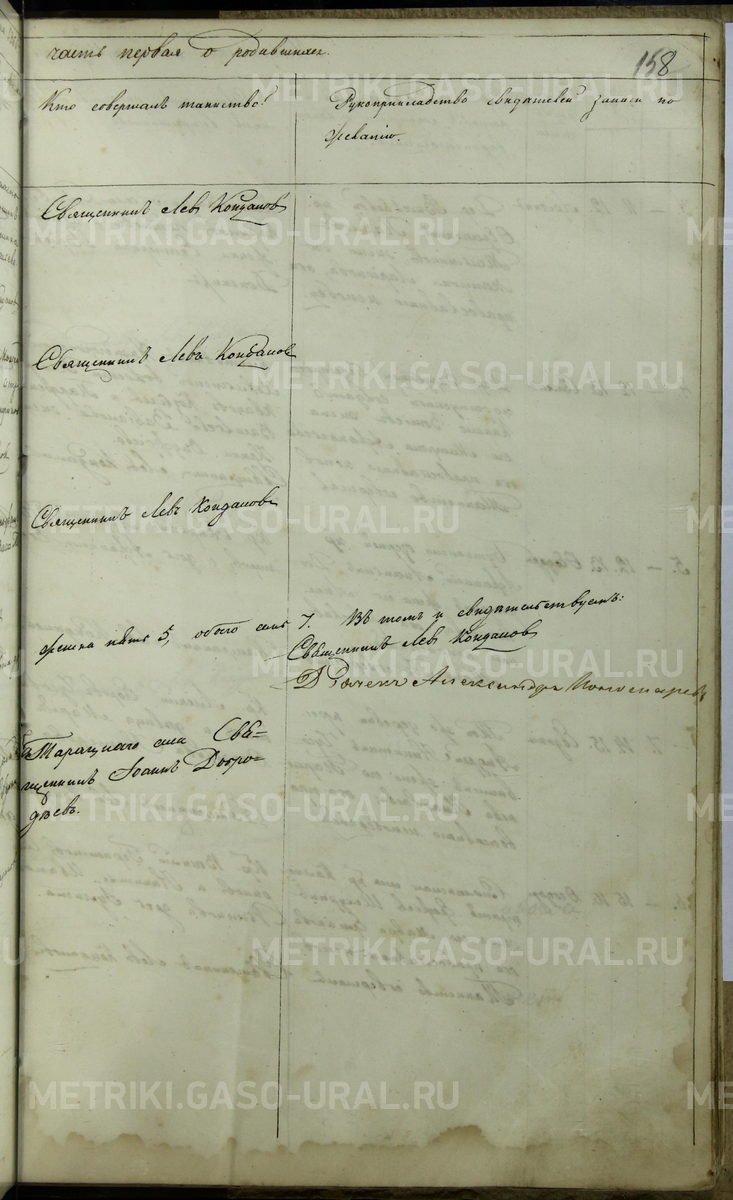 часть первая о родившихся.
158
Кто совершалъ таинство?
Рукоприкладство свидѣтелей записи по
желанію.
Священникъ Левъ Кондаковъ
Священникъ Левъ Кондаковъ
Священникъ Левъ Кондаковъ
женска пять 5, обоего 7. Въ томъ и свидѣтельствуемъ:
Священникъ Левъ Кондаковъ
Дьячекъ Александръ Пономаревъ
села Свя-
щенникъ Іоаннъ Добро-
дѣевъ.
METRIKI.GASO-URAL.RU